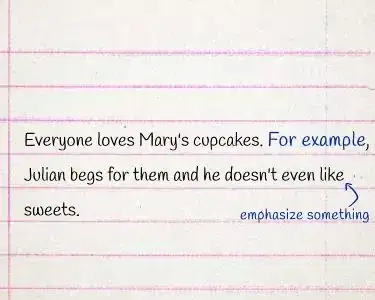 Everyone loves Mary's cupcakes. For example,
Julian begs for them and he doesn't even like
sweets.
emphasize something